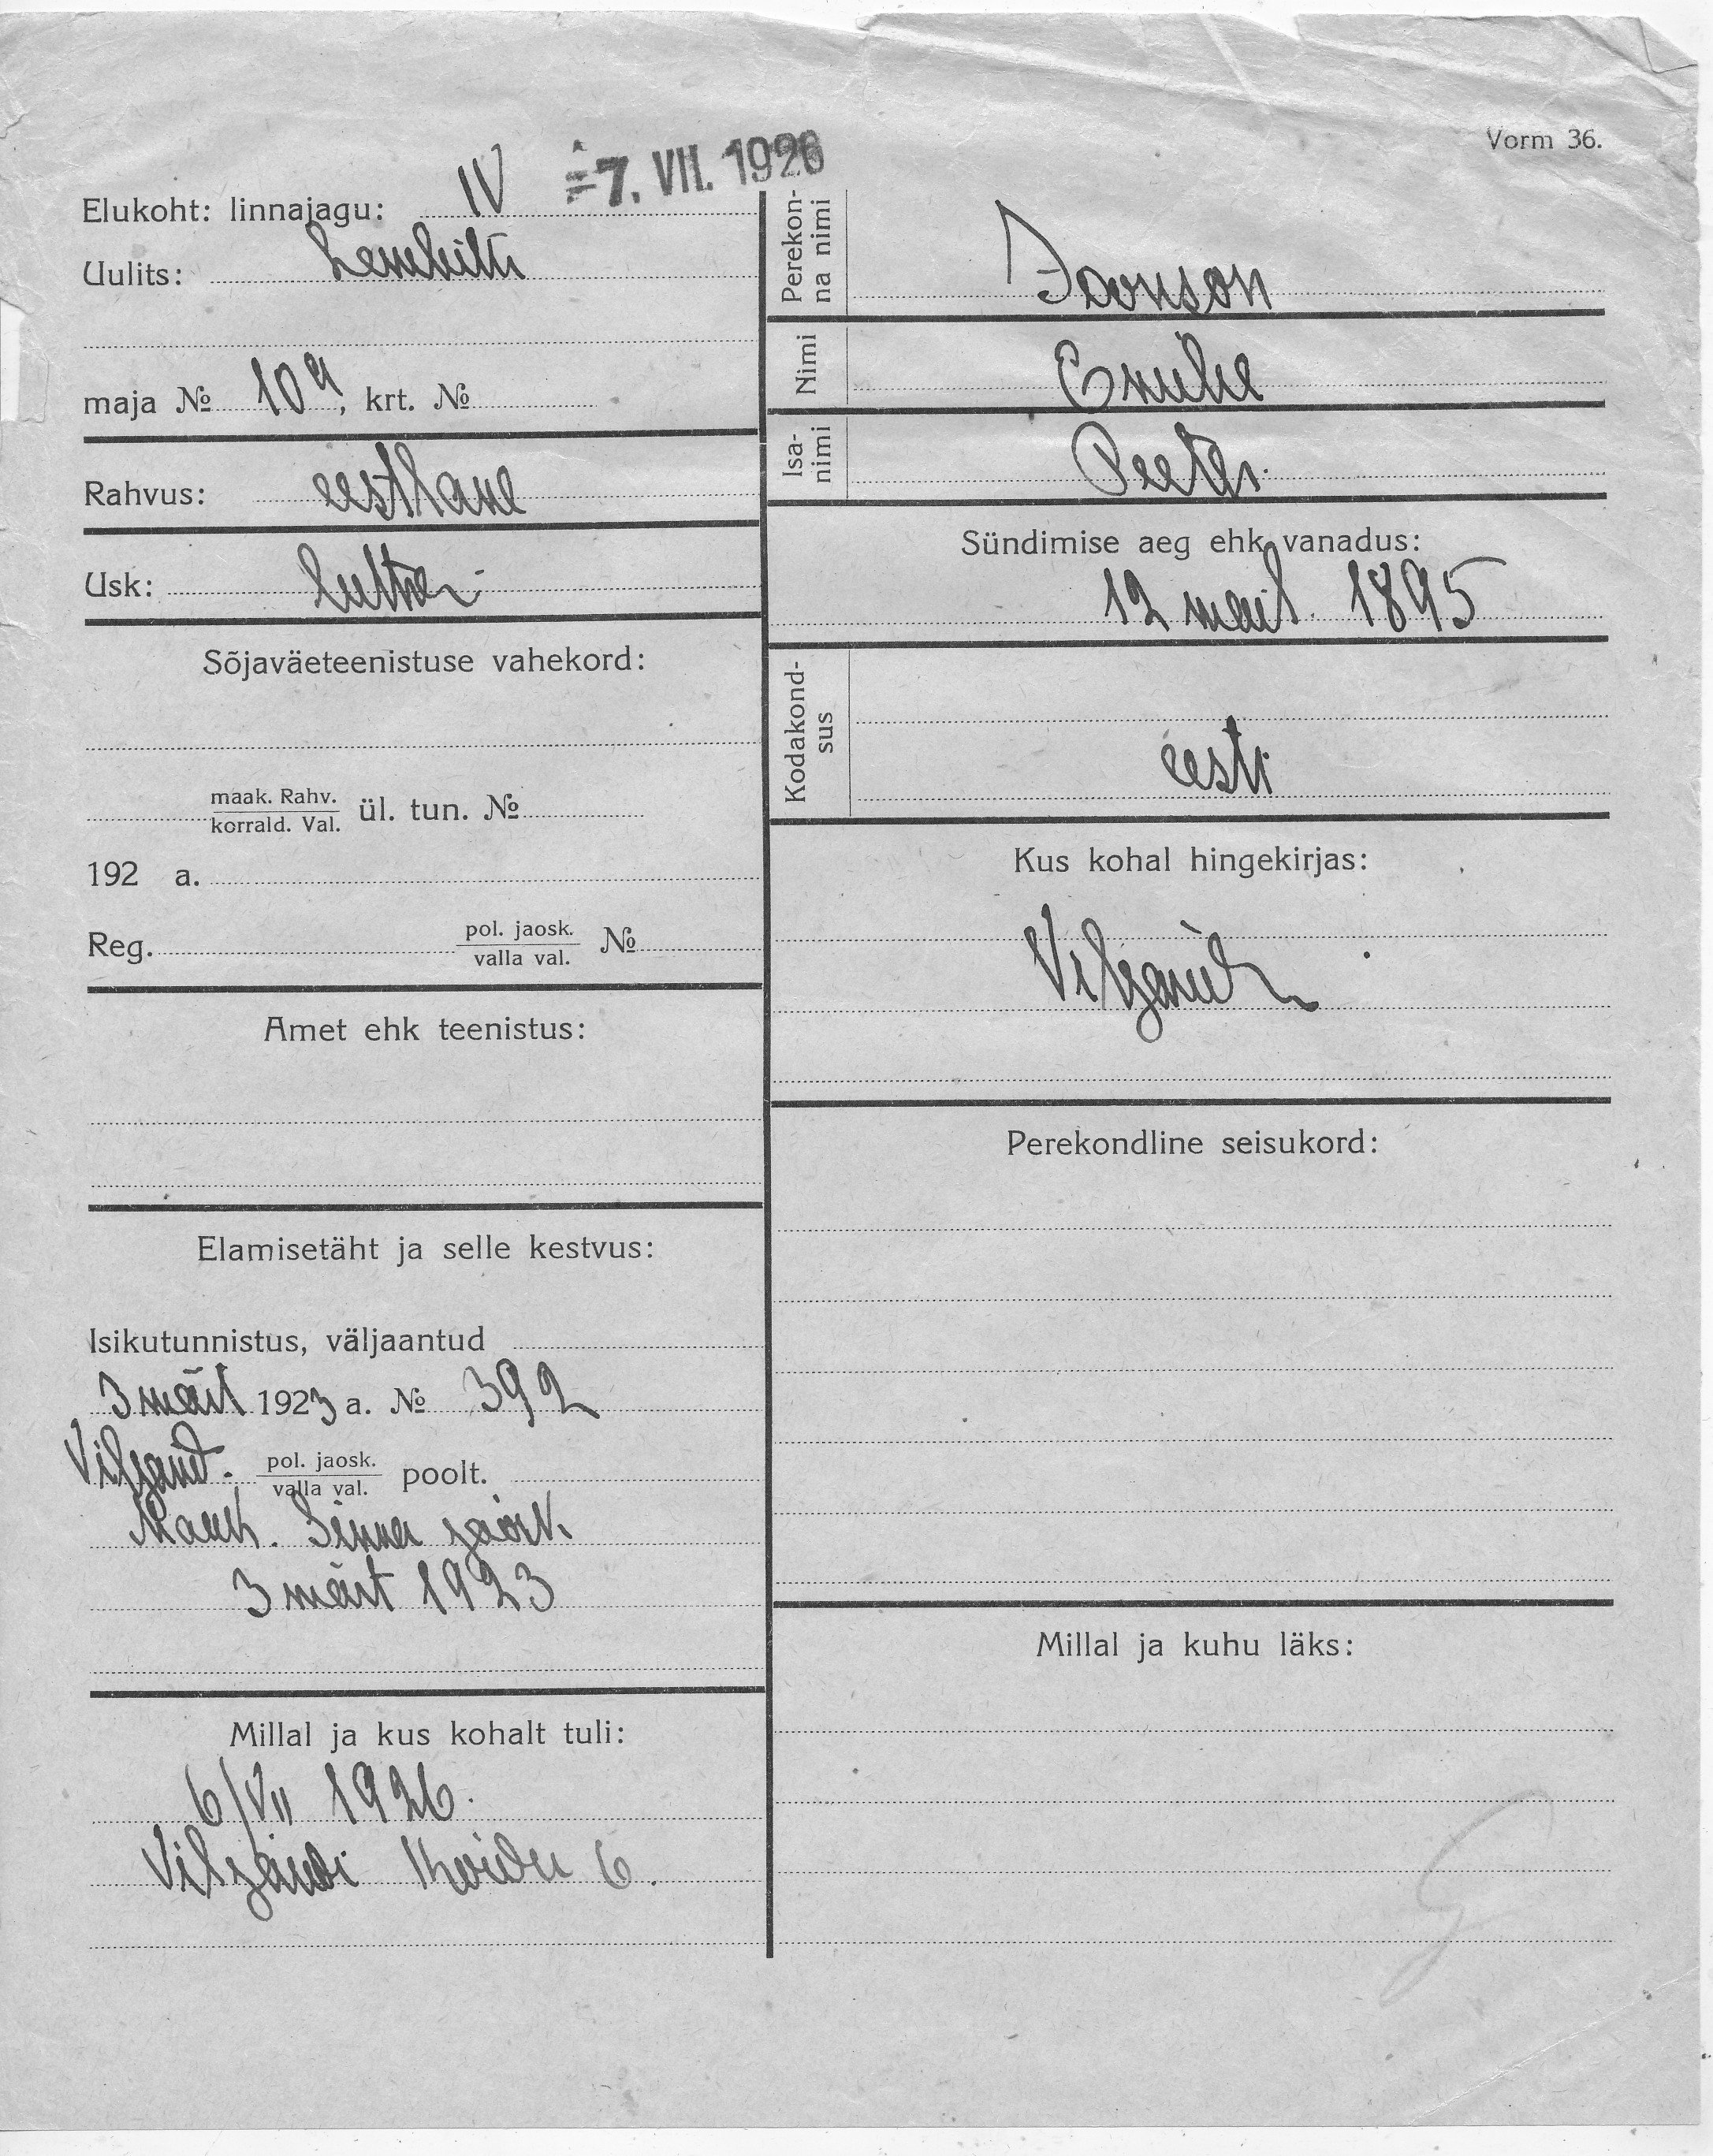 Vorm 36.
-7. VII. 1926
Elukoht: linnajagu: IV
Uulits: Lembitu
maja № 10a, krt. №
Rahvus: eestlane
Usk: luther
Sõjaväeteenistuse vahekord:
maak. Rahv.
korrald. Val. ül. tun. №
192 a.
Reg. pol. jaosk.
valla val. №
Amet ehk teenistus:
Elamisetäht ja selle kestvus:
Isikutunnistus, väljaantud
3 märt 1923 a. № 392
Viljand. pol. jaosk.
valla val. poolt.
Linna jaosk.
3 märt 1923
Millal ja kus kohalt tuli:
6/VII 1926.
Viljandi Koidu 6.
Perekon-
na nimi
Nimi Emilie
Isa-
nimi Peeter
Sündimise aeg ehk vanadus:
12 mail. 1895
Kodakond-
sus eesti
Kus kohal hingekirjas:
Viljandi
Perekondline seisukord:
Millal ja kuhu läks: